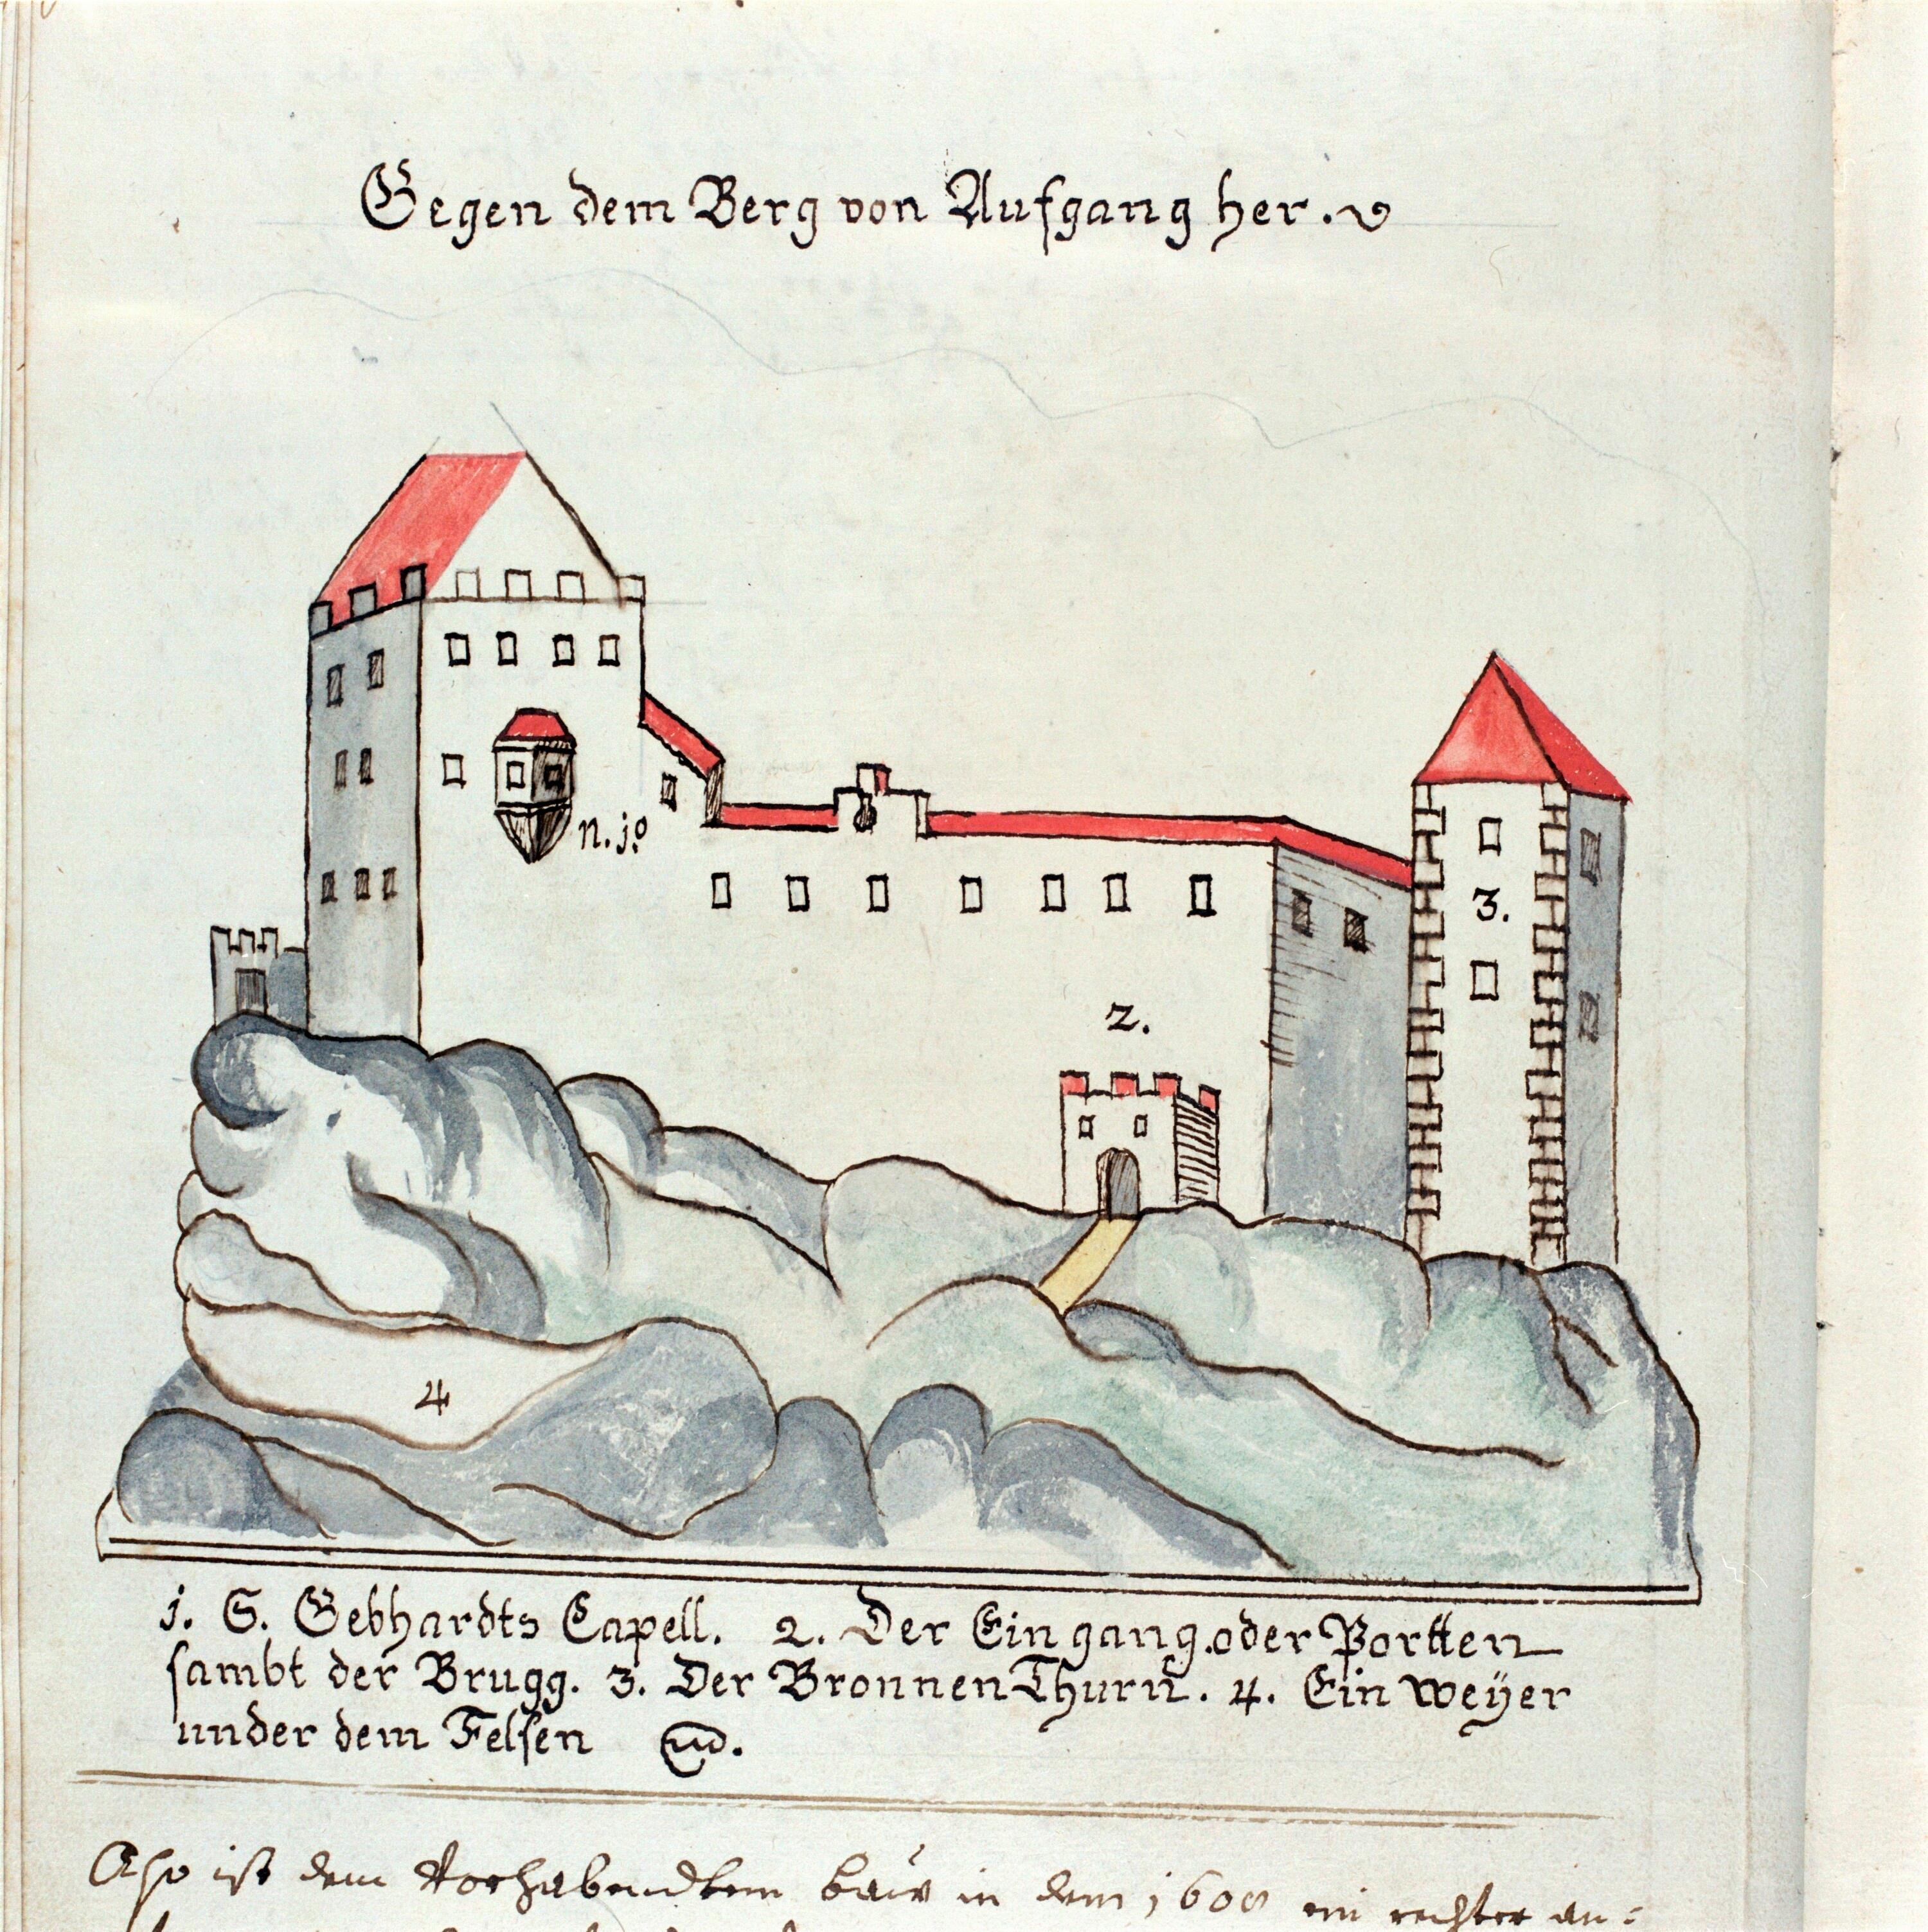 Gegen dem Berg von Aufgang her.
n. j.o
3.
2.
4
j. S. Gebhardts Capell. 2. Der Eingang. oder Portten
sambt der Brugg. 3. Der BronnenThurn. 4. Ein weÿer
under dem Felsen
Also ist dem Vorhabendten bauw in dem 1608 ein rechter an=